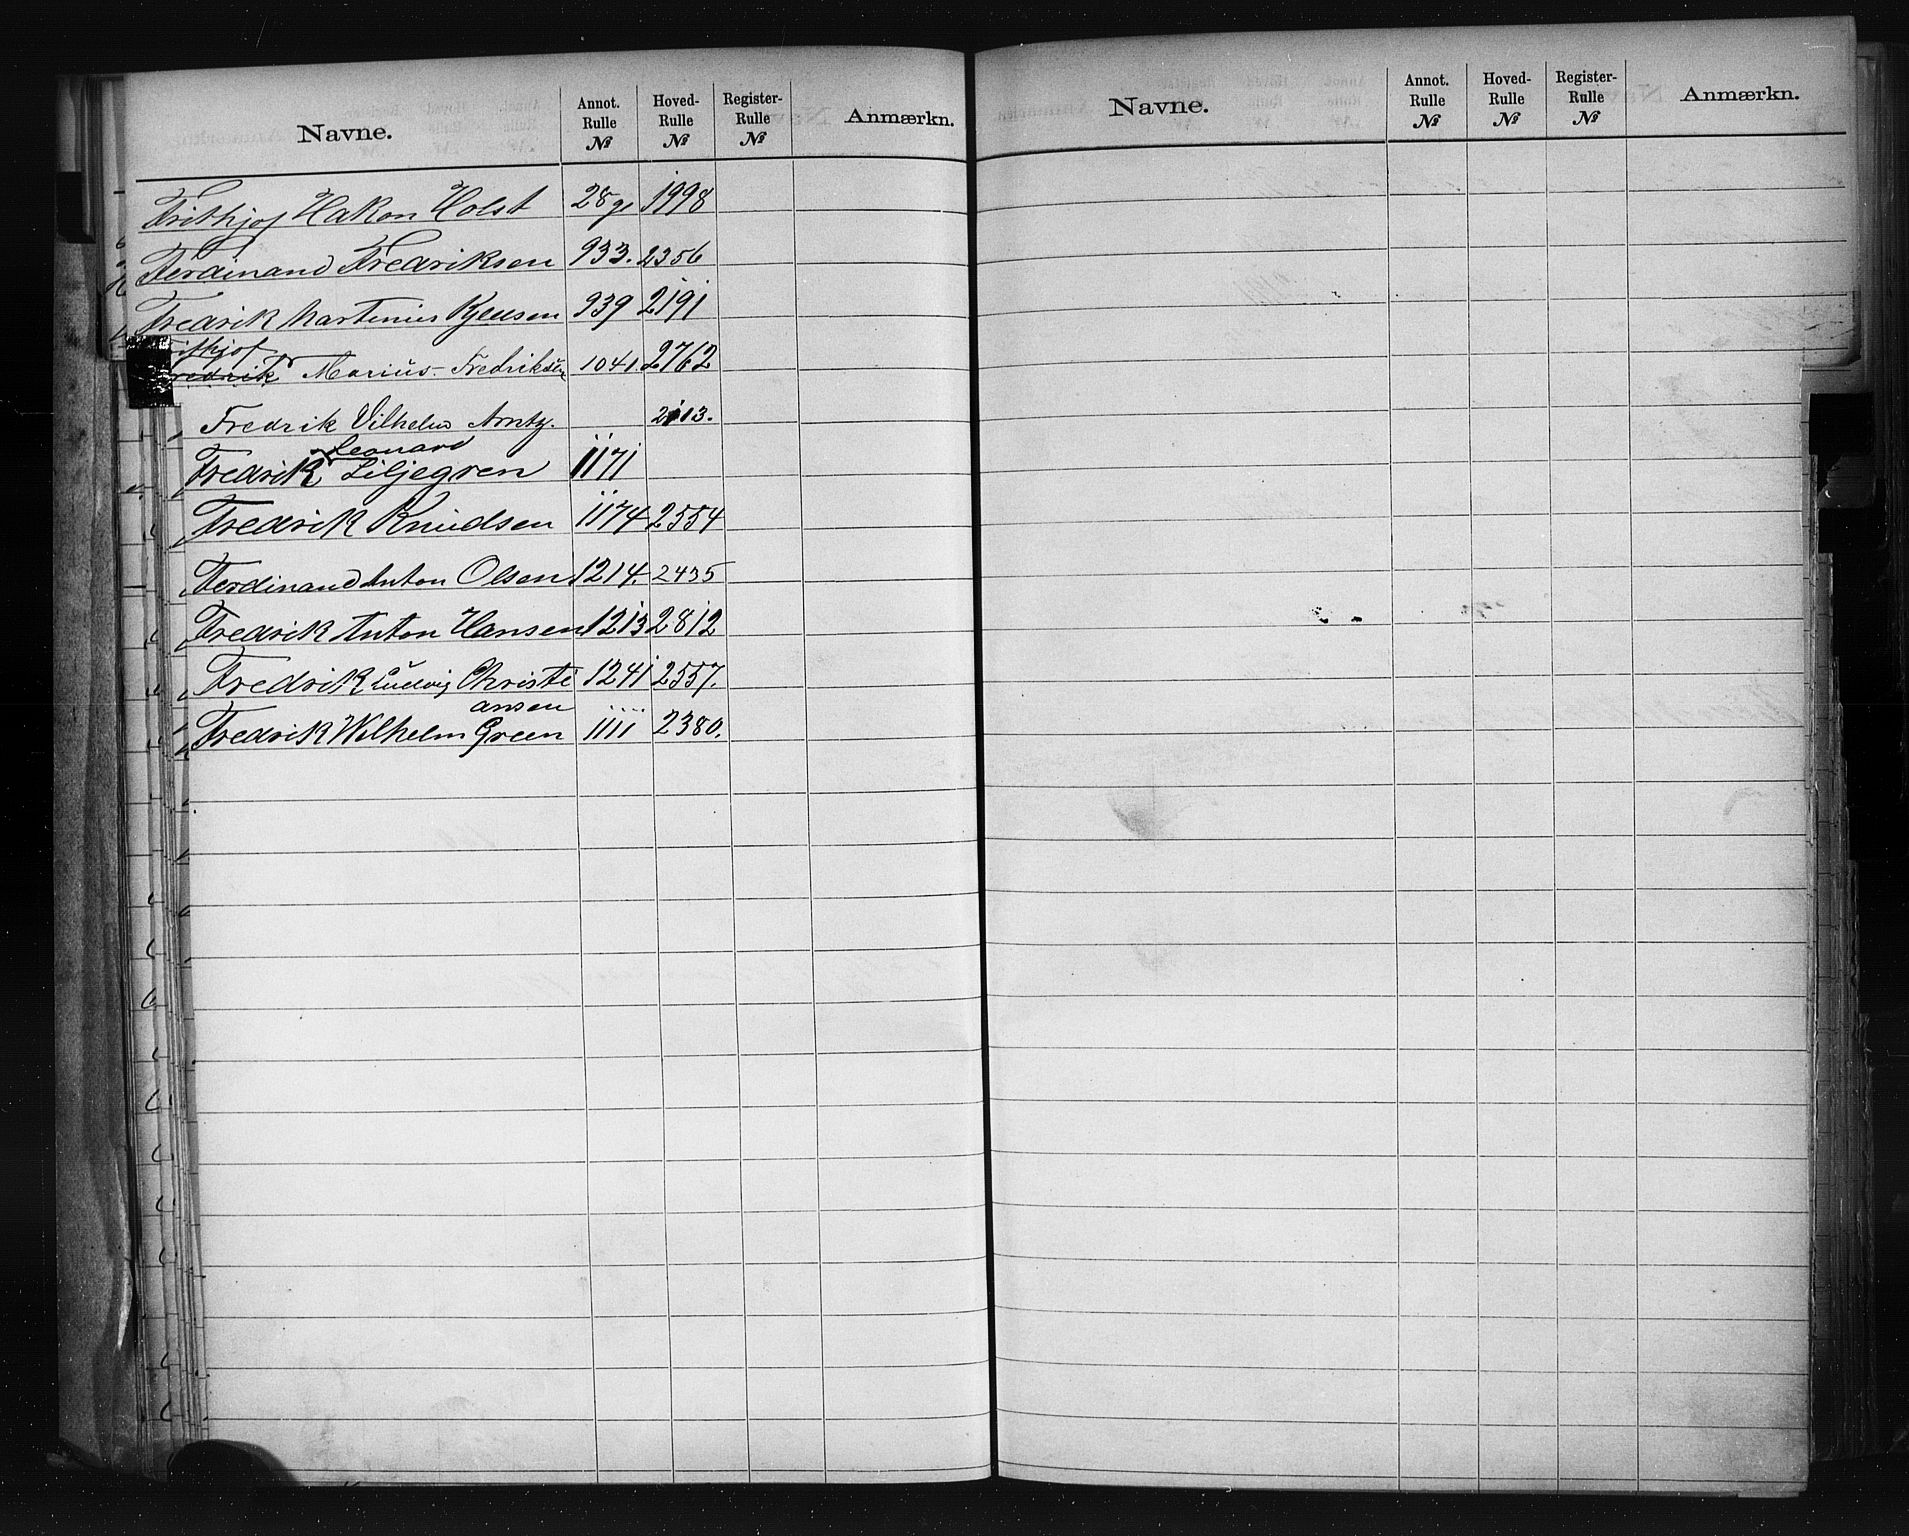 Navne. Annot. Rulle № Hoved-Rulle № Register-Rulle № Anmærkn.
Frithjof Hakon Holst 1998
Ferdinand Fredriksen 933. 2356
Fredrik Martinius 939 2191
Frithjof
Fredrik Marius Fredriksen 1041. 2762
Fredrik Vilhelm Arntz. 2113.
Leonard
Fredrik Liljegren 1171
Fredrik Knudsen 1174 2554
Ferdinand Anton Olsen 1214. 2435
Fredrik Anton Hansen 1213 2812
Fredrik Ludvig Christi 1241 2557.
ansen
Fredrik Wilhelm Green 1111 2380.
Navne. Annot. Rulle № Hoved-Rulle № Register-Rulle № Anmærkn.